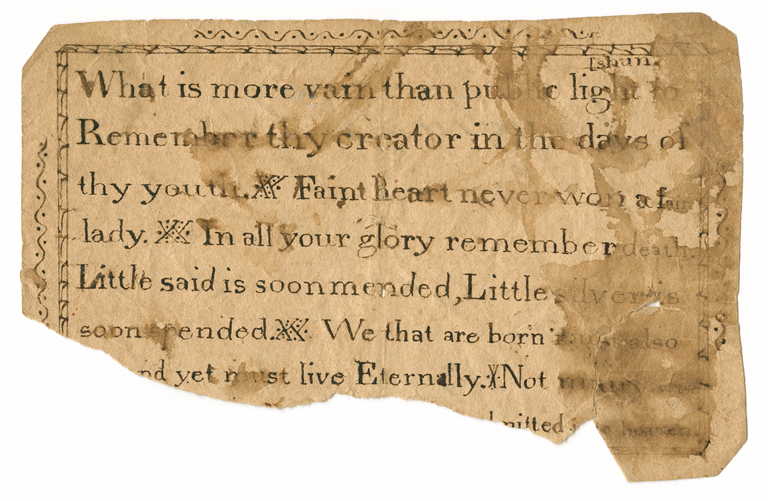 [shun.
What is more vain than public light to
Remember thy creator in the days of
thy youth. Faint heart never won a fair
lady. In all your glory remember death.
Little said is soon mended, Little silver is
soon spended. We that are born must also
and yet must live Eternally. Not many
mitted heaven